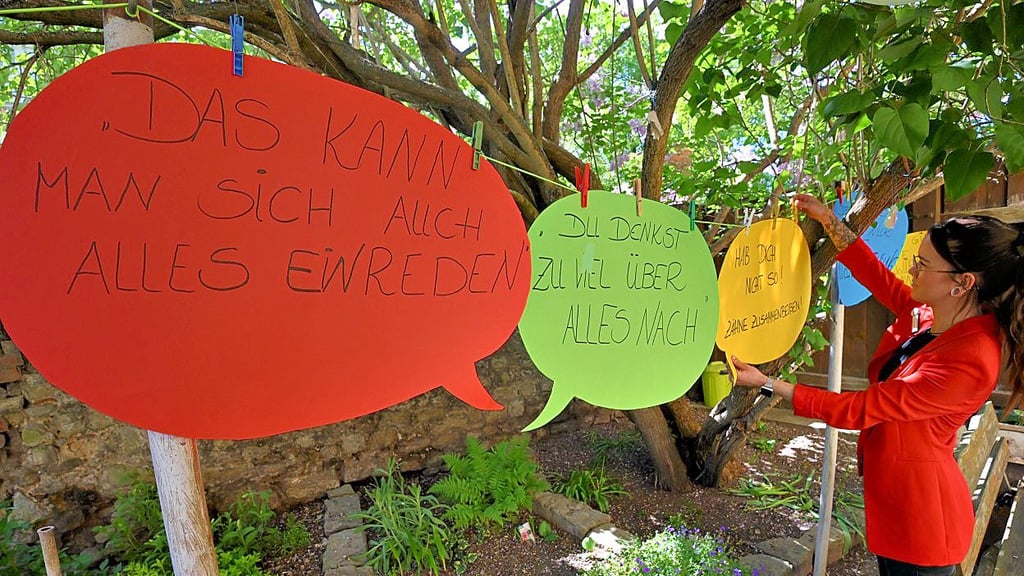 „DAS KANN
MAN SICH AUCH
ALLES EINREDEN"
„DU DENKST
ZU VIEL ÜBER
ALLES NACH"
HAB DICH
NICHT SO!
ZÄHNE ZUSAMMENBEIßEN!